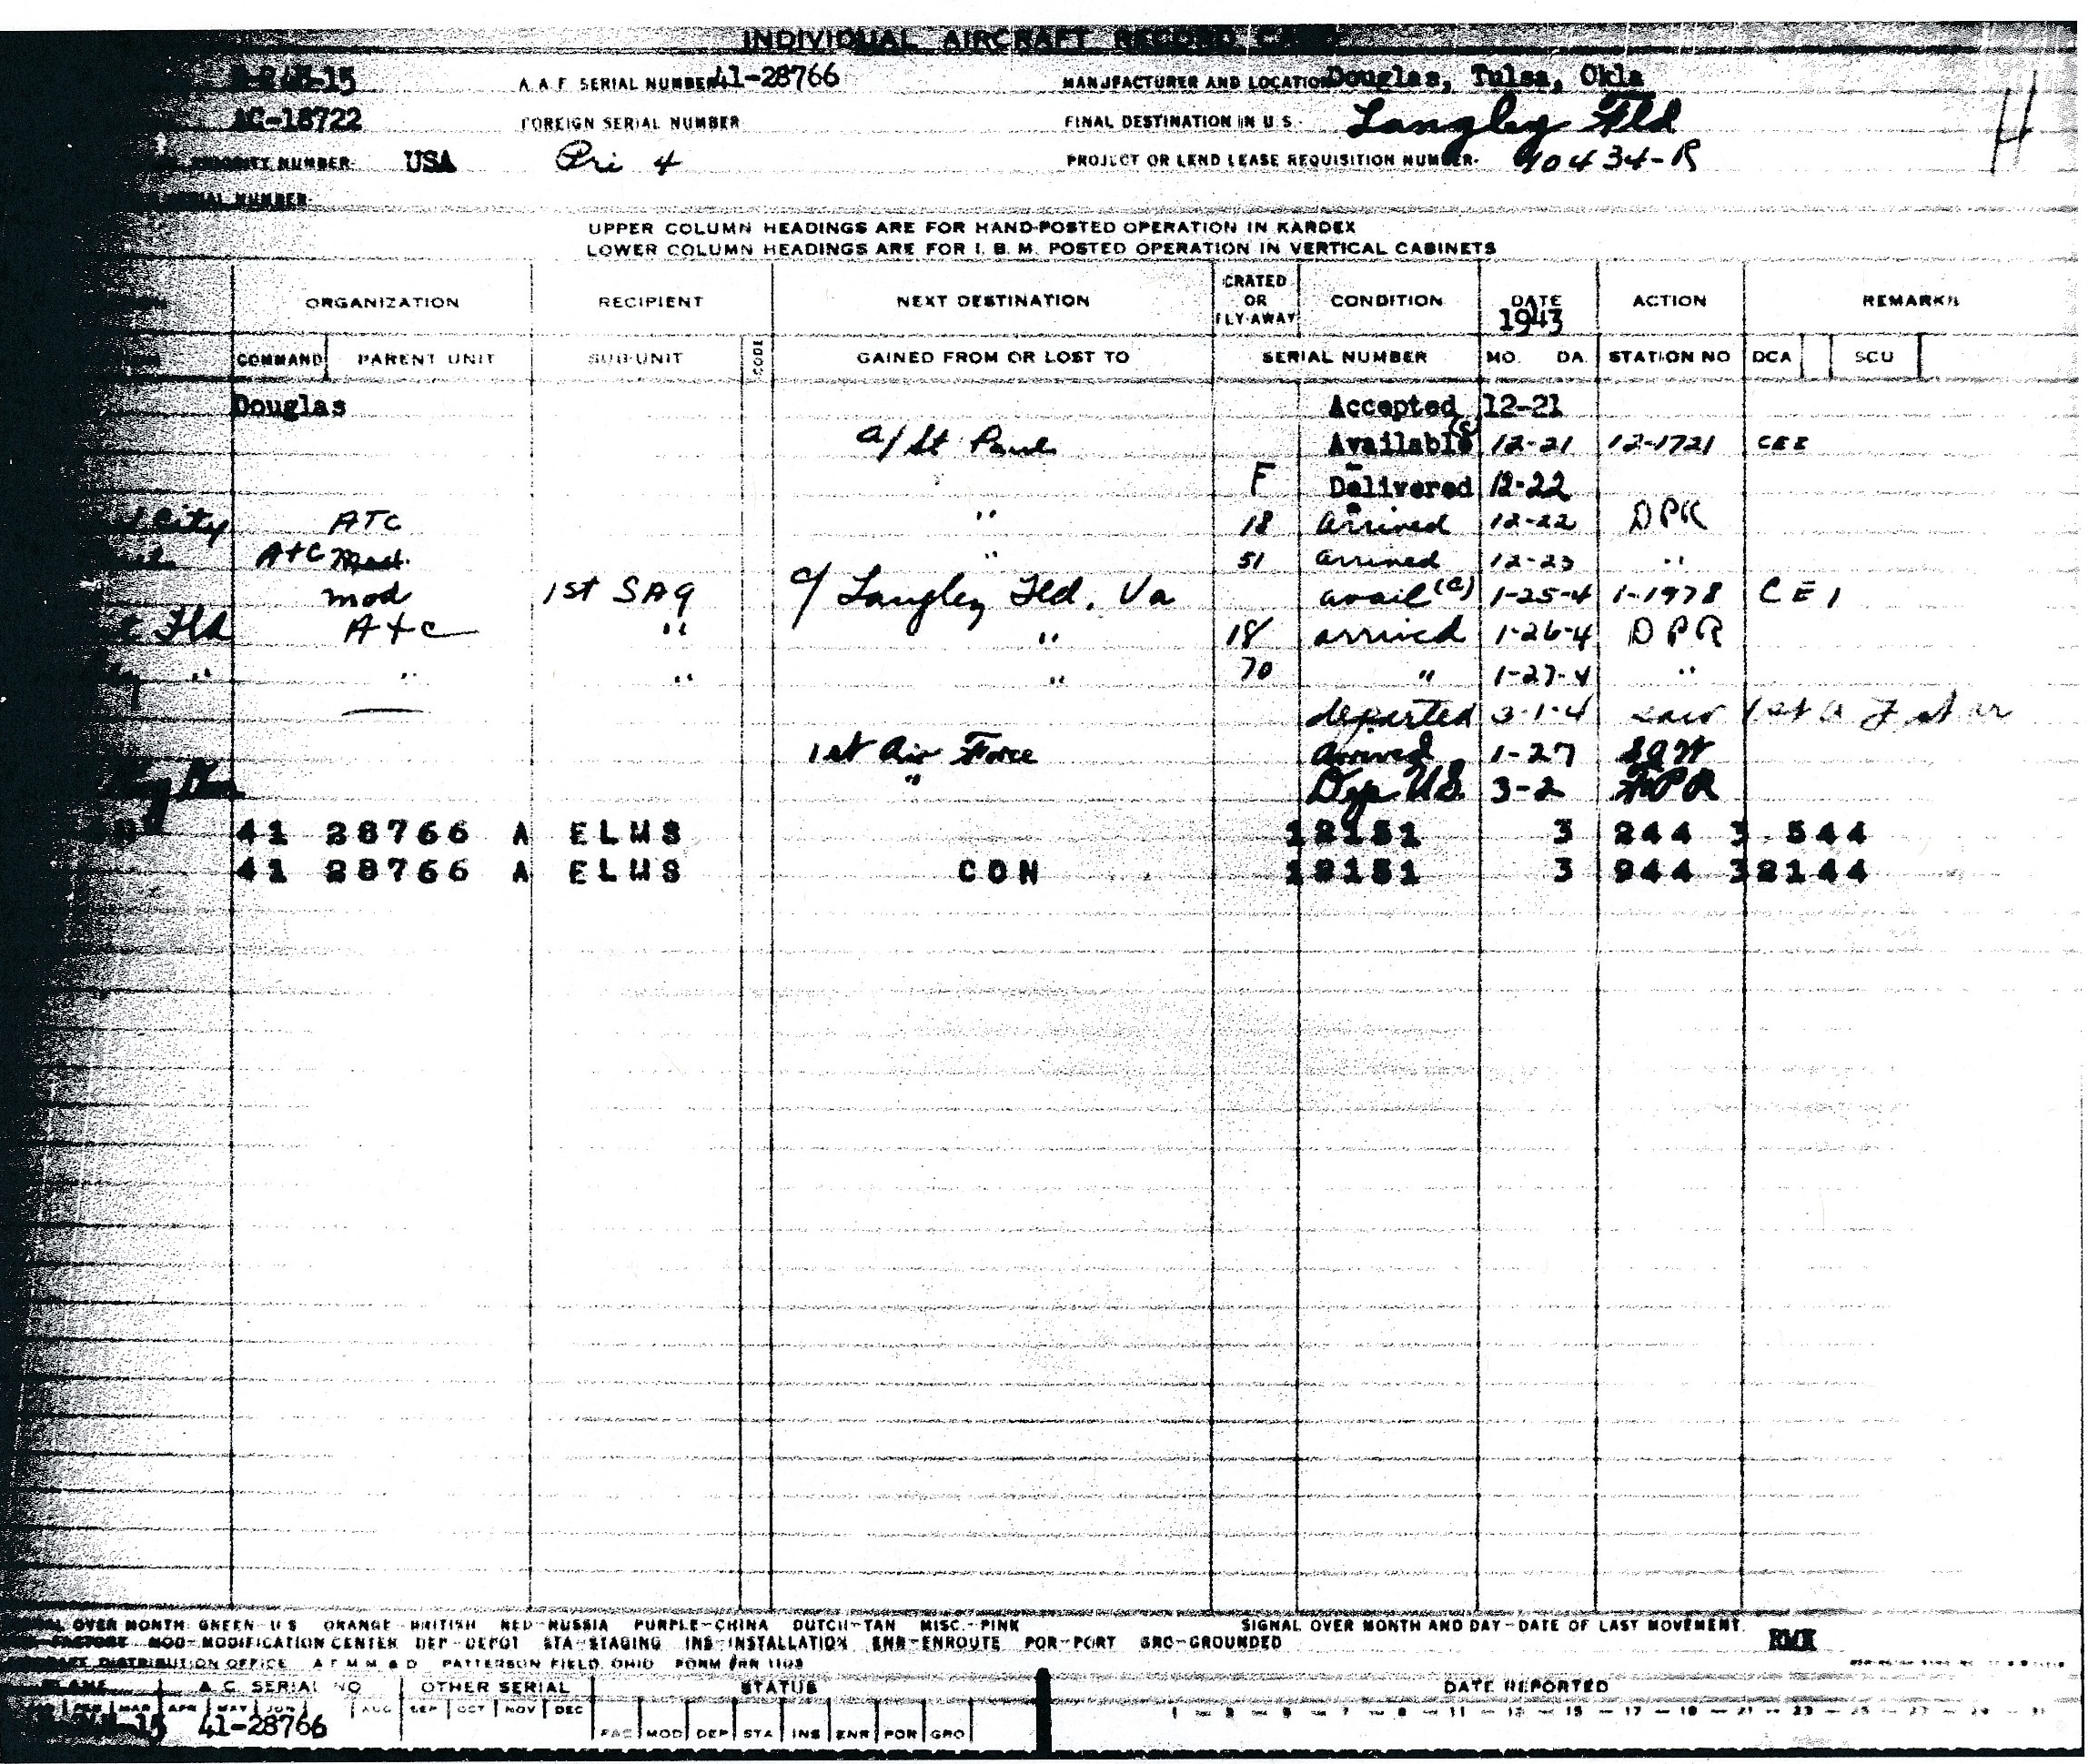 INDIVIDUAL AIRCRAFT RECORD CARD
15 A. A. F. SERIAL NUMBER 41-28766 MANUFACTURER AND LOCATION Douglas, Tulsa, Okla
AC-18722 FOREIGN SERIAL NUMBER FINAL DESTINATION IN U.S. Langley Fld H
PRIORITY NUMBER- USA Pri 4 PROJECT OR LEND LEASE REQUISITION NUMBER- 90434-R
SERIAL NUMBER-
UPPER COLUMN HEADINGS ARE FOR HAND-POSTED OPERATION IN KARDEX
LOWER COLUMN HEADINGS ARE FOR I. B. M. POSTED OPERATION IN VERTICAL CABINETS
ORGANIZATION RECIPIENT NEXT DESTINATION CRATED OR FLY-AWAY CONDITION DATE 1943 ACTION REMARKS
COMMAND PARENT UNIT SUB-UNIT CODE GAINED FROM OR LOST TO SERIAL NUMBER MO. DA. STATION NO DCA SCU
Douglas Accepted 12-21
a/ St Paul Available (c) 12-21 12-1721 CEI
F Delivered 12-22
City ATC " 18 arrived 12-22 DPR
Atc Mod. " 51 arrived 12-23 "
Mod 1st SAG a/ Langley Fld, Va avail (c) 1-25-4 1-1978 CEI
Fld Atc " " 18 arrived 1-26-4 DPR
" " " " 70 " 1-27-4 "
departed 3-1-4 1st a
1st Air Force arrived 1-27
" Dep US. 3-2 FPR
41 28766 A ELMS 12151 3 244 3 544
41 28766 A ELMS CON 12151 3 244 32144
OVER MONTH GREEN-U S ORANGE-BRITISH RED-RUSSIA PURPLE-CHINA DUTCH-TAN MISC.-PINK SIGNAL OVER MONTH AND DAY-DATE OF LAST MOVEMENT.
FACTORY MOD-MODIFICATION CENTER DEP-DEPOT STA-STAGING INS-INSTALLATION ENR-ENROUTE POR-PORT GRO-GROUNDED RMK
DISTRIBUTION OFFICE A F M M & D PATTERSON FIELD, OHIO FORM 1103
A. C. SERIAL NO OTHER SERIAL STATUS DATE REPORTED
FEB MAR APR MAY JUN AUG SEP OCT NOV DEC
15 41-28766 FAC MOD DEP STA INS ENR POR GRO